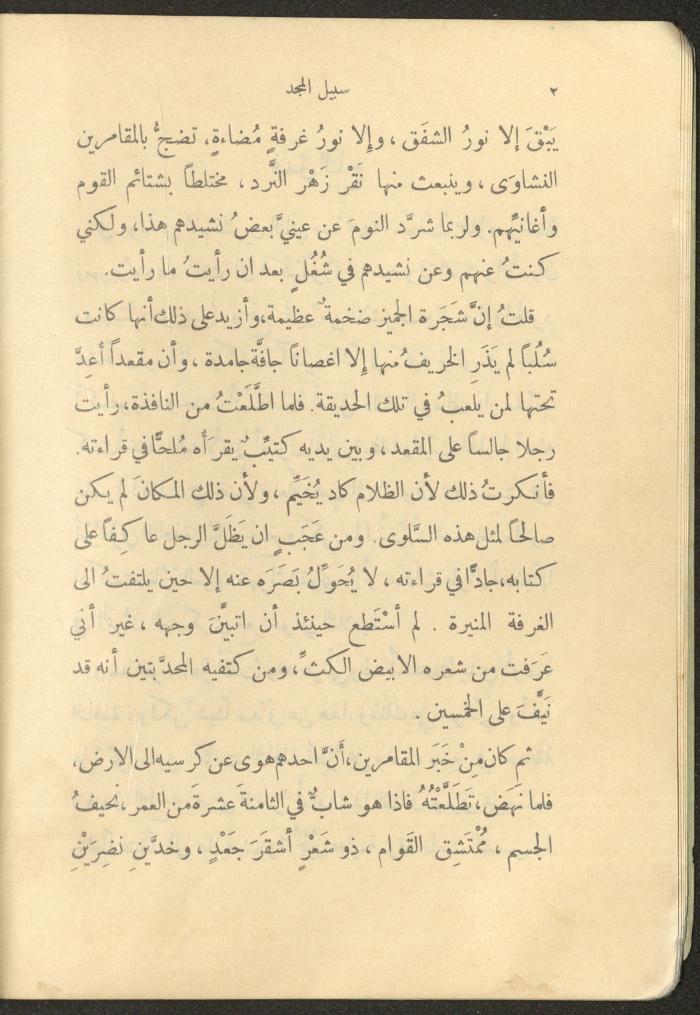 ٢ سبيل المجد
يَبْقَ إلا نورُ الشفَق ، وإِلا نورُ غرفةٍ مُضاءةٍ، تضجُّ بالمقامرين
النشاوَى ، وينبعث منها نَقْر زَهْر النَّرد ، مختلطاً بشتائم القوم
وأغانيِّهم. ولربما شرَّد النومَ عن عينيَّ بعضُ نشيدهم هذا، ولكني
كنتُ عنهم وعن نشيدهم في شُغُلٍ بعد ان رأيتُ ما رأيت.
قلتُ إنَّ شَجَرة الجميز ضخمةٌ عظيمة، وأزيد على ذلك أنها كانت
سُلُباً لم يَذَرِ الخريفُ منها إِلا اغصاناً جافَّة جامدة ، وأن مقعداً أُعِدَّ
تحتها لمن يلعبُ في تلك الحديقة. فلما اطَّلَعْتُ من النافذة، رأيت
رجلا جالساً على المقعد، وبين يديه كتيِّبٌ يقرَأه مُلحًّا في قراءته.
فأنكرتُ ذلك لأن الظلام كاد يُخَيِّم ، ولأن ذلك المكانَ لم يكن
صالحاً لمثل هذه السَّلوى. ومن عَجَبٍ ان يَظَلَّ الرجل عاكِفاً على
كتابه، جادًّا في قراءته ، لا يُحَوِّلُ بَصَرَه عنه إلا حين يلتفتُ الى
الغرفة المنيرة . لم أسْتَطع حينئذ أن اتبيَّنَ وجهه ، غير أني
عَرَفت من شعره الابيض الكثِّ، ومن كتفيه المحدَّبتين أنه قد
نَيَّفَ على الخمسين .
ثم كان مِنْ خَبَر المقامرين، أَنَّ احدهم هوى عن كرسيه الى الارض،
فلما نهَض، تَطَلَّعْتُهُ فاذا هو شابٌّ في الثامنةَ عشرةَ من العمر، نحيفُ
الجسم ، مُمْتَشِق القَوام ، ذو شَعْرٍ أشقَرَ جَعْدٍ ، وخدَّينِ نضِرَيْنِ